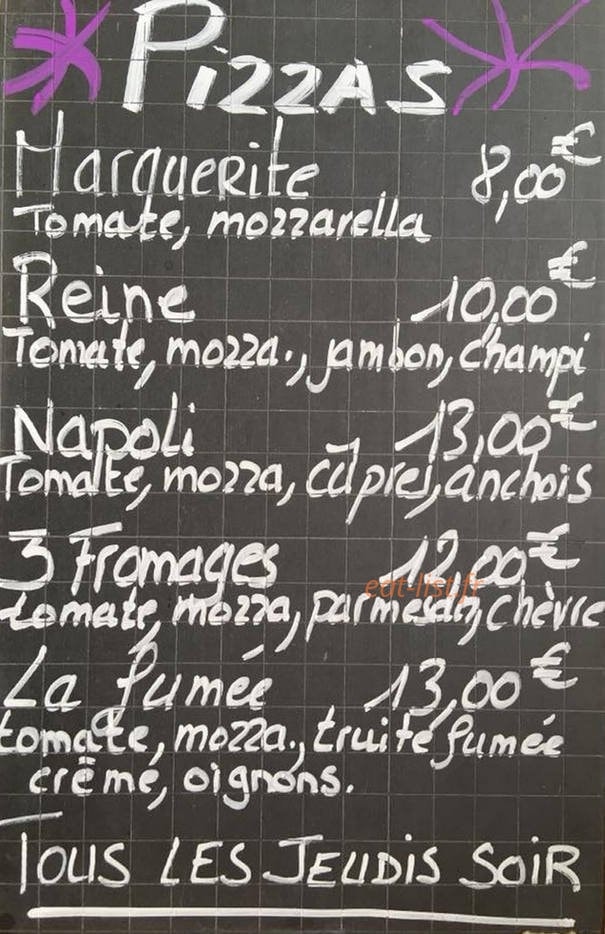 PIZZAS
MARGUERITE 8,00€
Tomate, mozzarella
Reine 10,00€
Tomate, mozza., jambon, champi
Napoli 13,00€
Tomate, mozza, câpres, anchois
3 Fromages 12,00€
tomate, mozza, parmesan, chèvre
eat-list.fr
La fumée 13,00€
tomate, mozza., truite fumée
crème, oignons.
TOUS LES JEUDIS SOIR